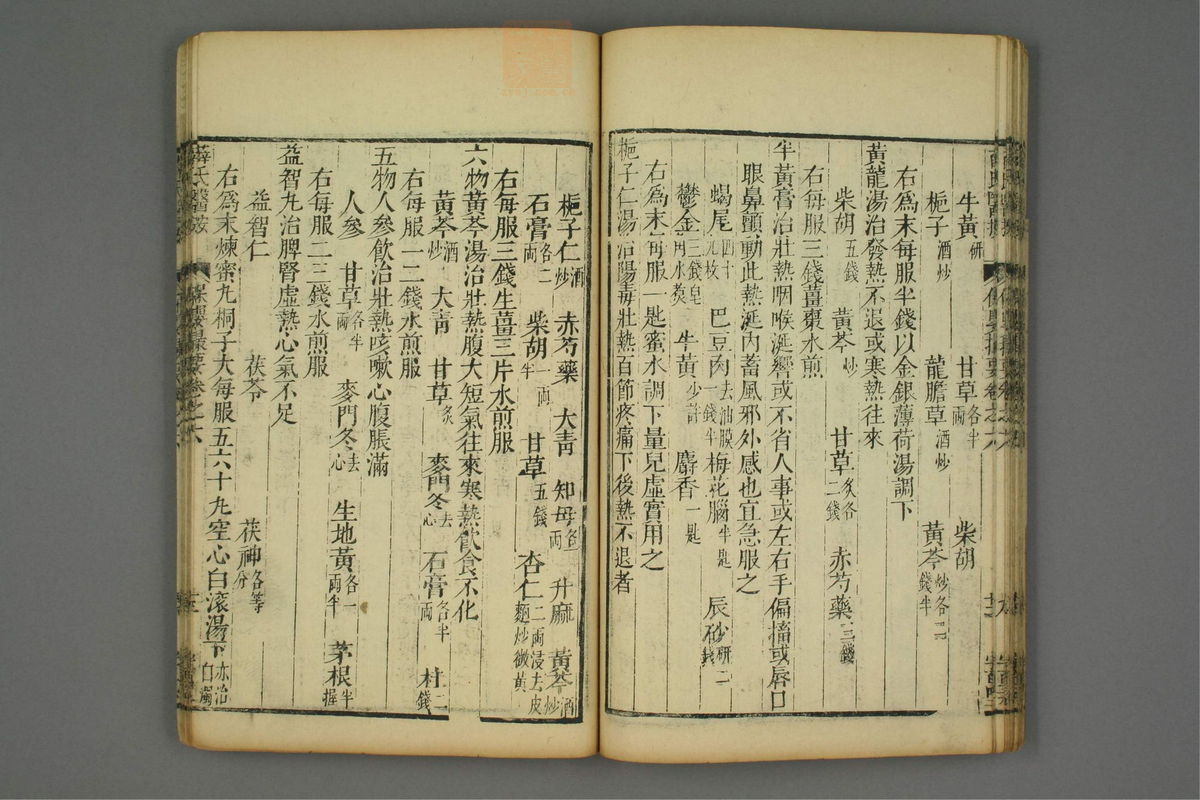 牛黃研 甘草各半兩 柴胡
梔子酒炒 龍膽草酒炒 黃芩炒各二錢半
右爲末每服半錢以金銀薄荷湯調下
黃龍湯治發熱不退或寒熱往來
柴胡五錢 黃芩炒 甘草炙各二錢 赤芍藥三錢
右每服三錢薑棗水煎
牛黃膏治壯熱咽喉涎響或不省人事或左右手偏搐或唇口
眼鼻顫動此熱涎內蓄風邪外感也宜急服之
蝎尾四十九枚 巴豆肉去油膜一錢半 梅花腦半匙 辰砂研二錢
鬱金三錢皂角水煑 牛黃少許 麝香一匙
右爲末每服一匙蜜水調下量兒虛實用之
梔子仁湯治陽毒壯熱百節疼痛下後熱不退者
梔子仁酒炒 赤芍藥 大青 知母各一兩 升麻 黃芩酒炒
石膏各二兩 柴胡一兩半 甘草五錢 杏仁二兩浸去皮麵炒微黃
右每服三錢生薑三片水煎服
六物黃芩湯治壯熱腹大短氣往來寒熱飲食不化
黃芩酒炒 大青 甘草炙 麥門冬去心 石膏各半兩 桂二錢
右每服一二錢水煎服
五物人參飲治壯熱咳嗽心腹脹滿
人參 甘草各半兩 麥門冬去心 生地黃各一兩半 茅根半握
右每服二三錢水煎服
益智丸治脾腎虛熱心氣不足
益智仁 茯苓 茯神各等分
右爲末煉蜜丸桐子大每服五六十丸空心白滾湯下亦治白濁
薛氏醫按 保嬰撮要卷之六